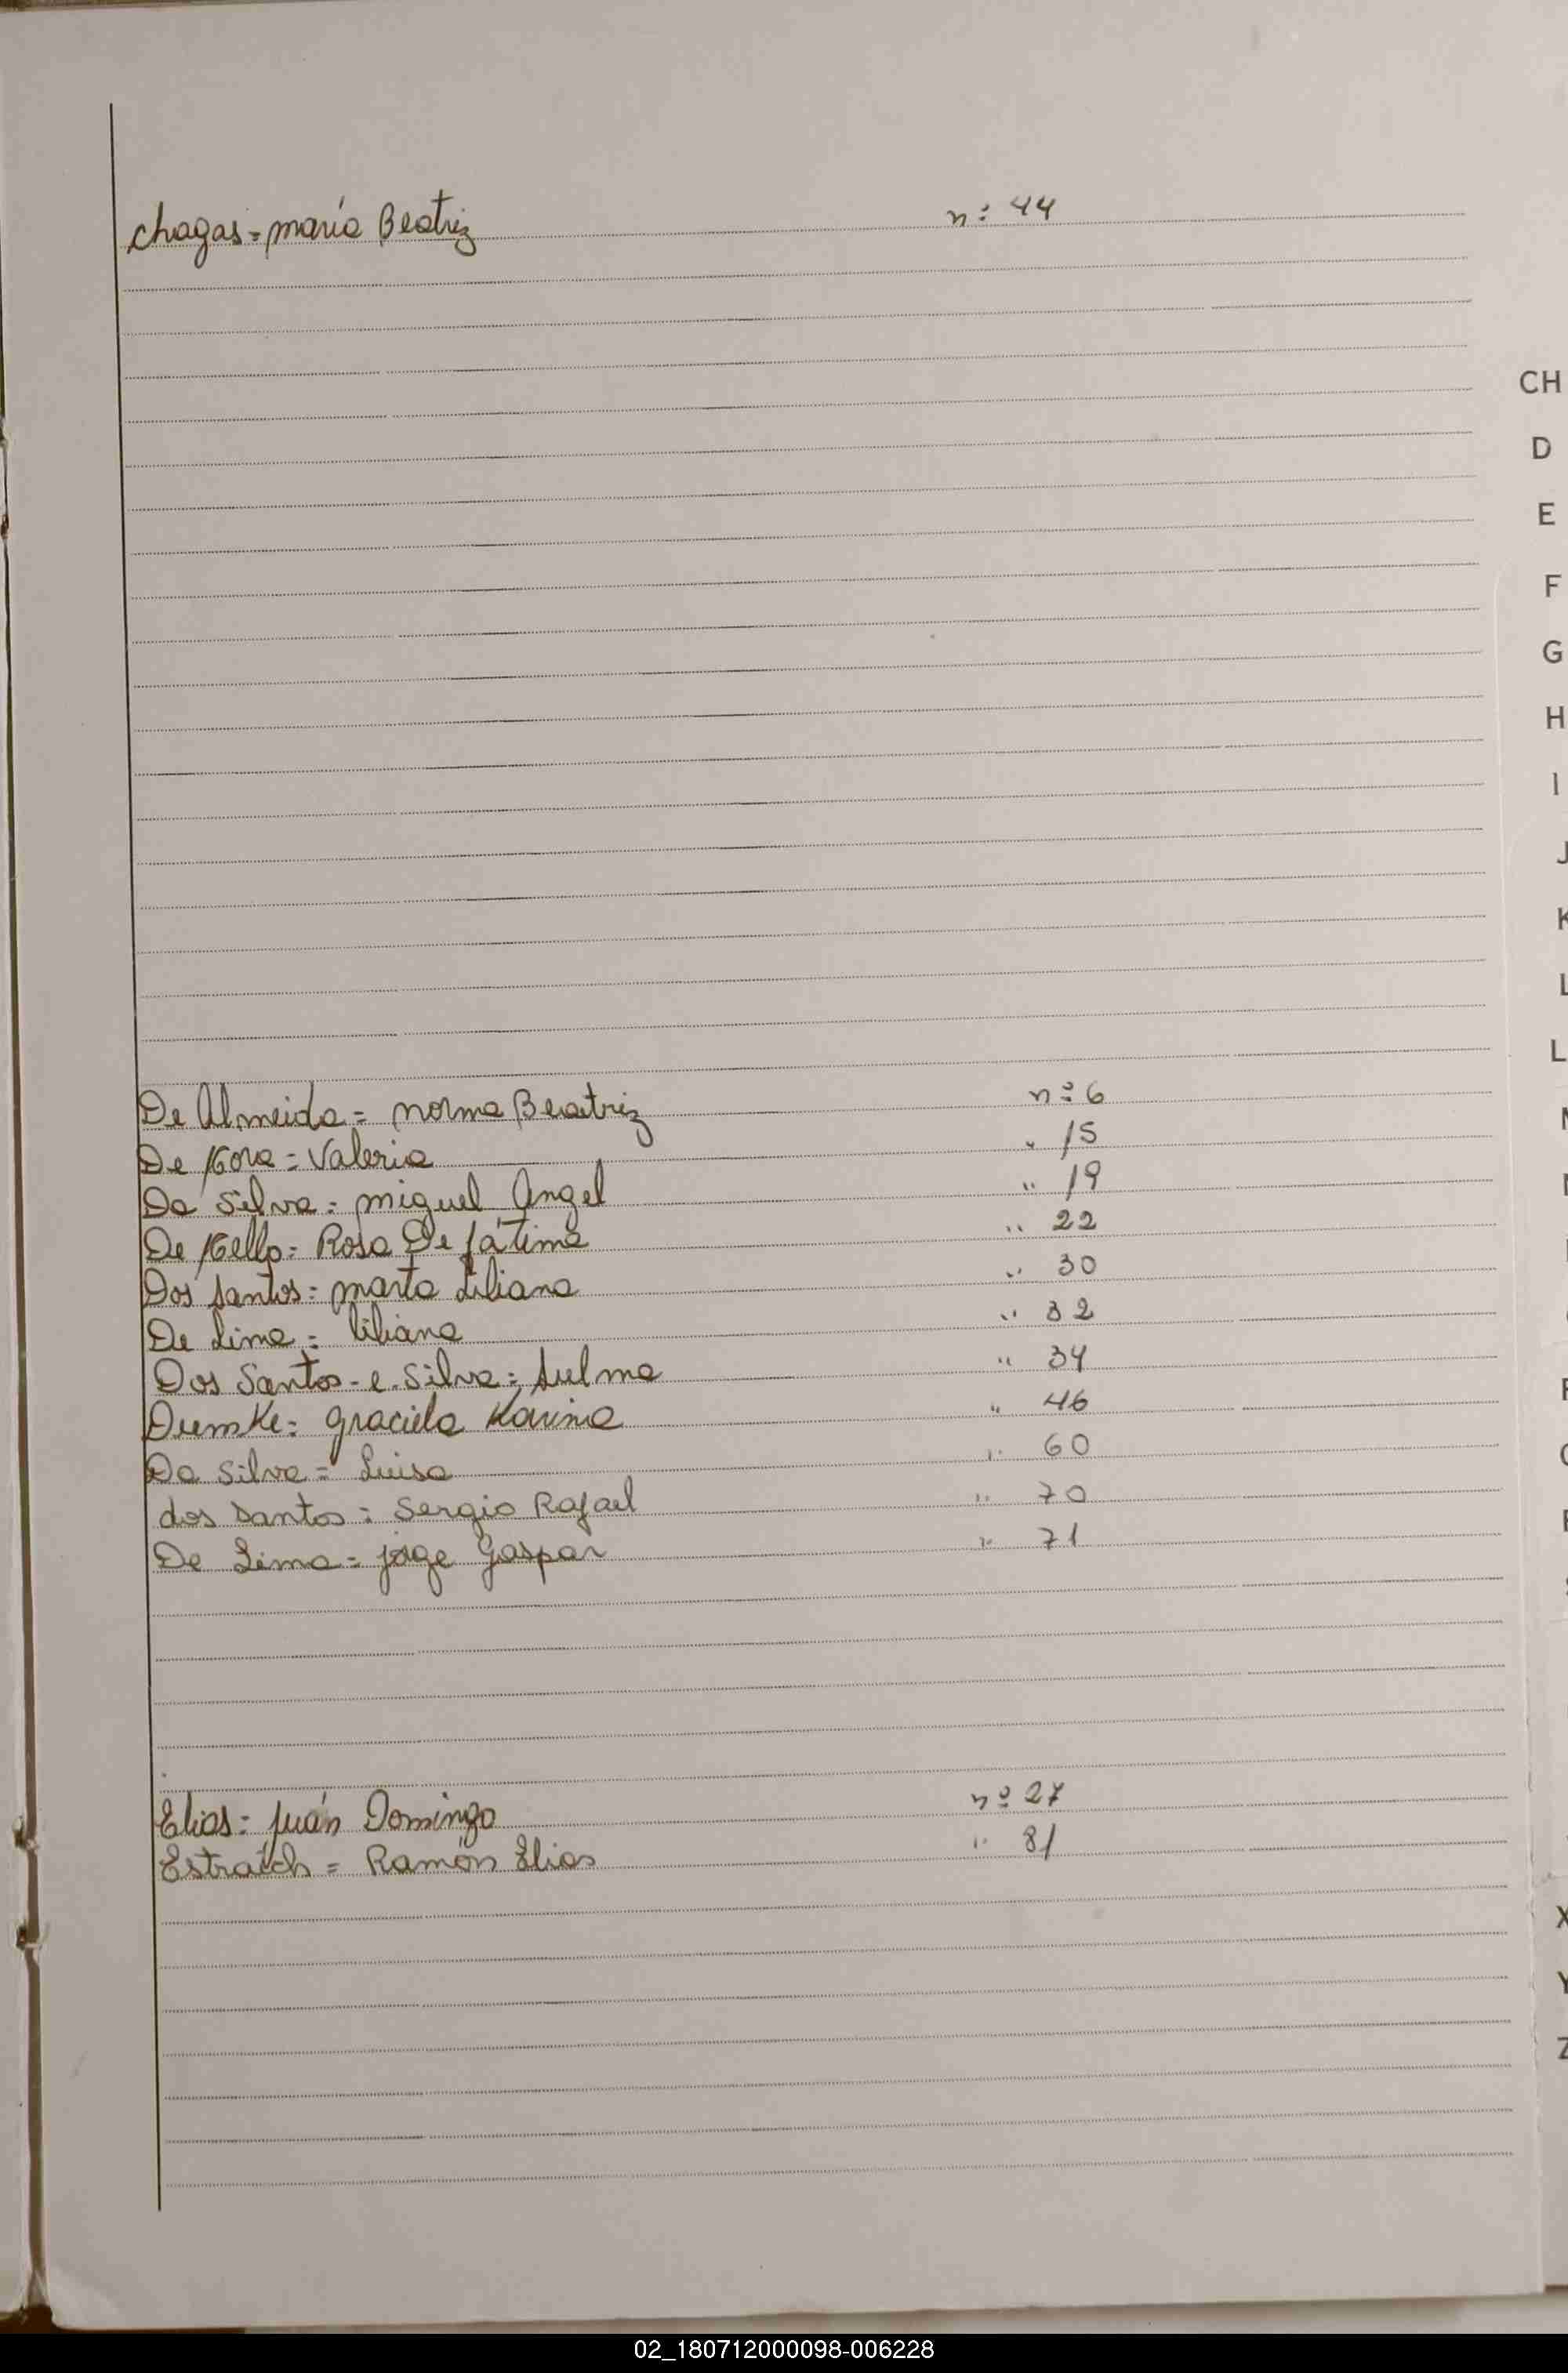 Chagas = maría Beatriz n: 44
CH
D
E
F
G
H
I
J
K
L
L
De Almeida = norma Beatriz nº 6
De Mora = Valeria " 15
Da Silva = miguel Angel " 19
De Mello = Rosa De fátima " 22
Dos Santos = marta Liliana " 30
De Lima = liliana " 32
Dos Santos - e. Silva = Sulma " 34
Dumke = graciela Karina " 46
Da Silva = Luisa " 60
dos Santos = Sergio Rafael " 70
De Lima = jorge Gaspar " 71
Elias = juán Domingo nº 27
Estraich = Ramón Elias " 81
X
Y
Z
02_180712000098-006228